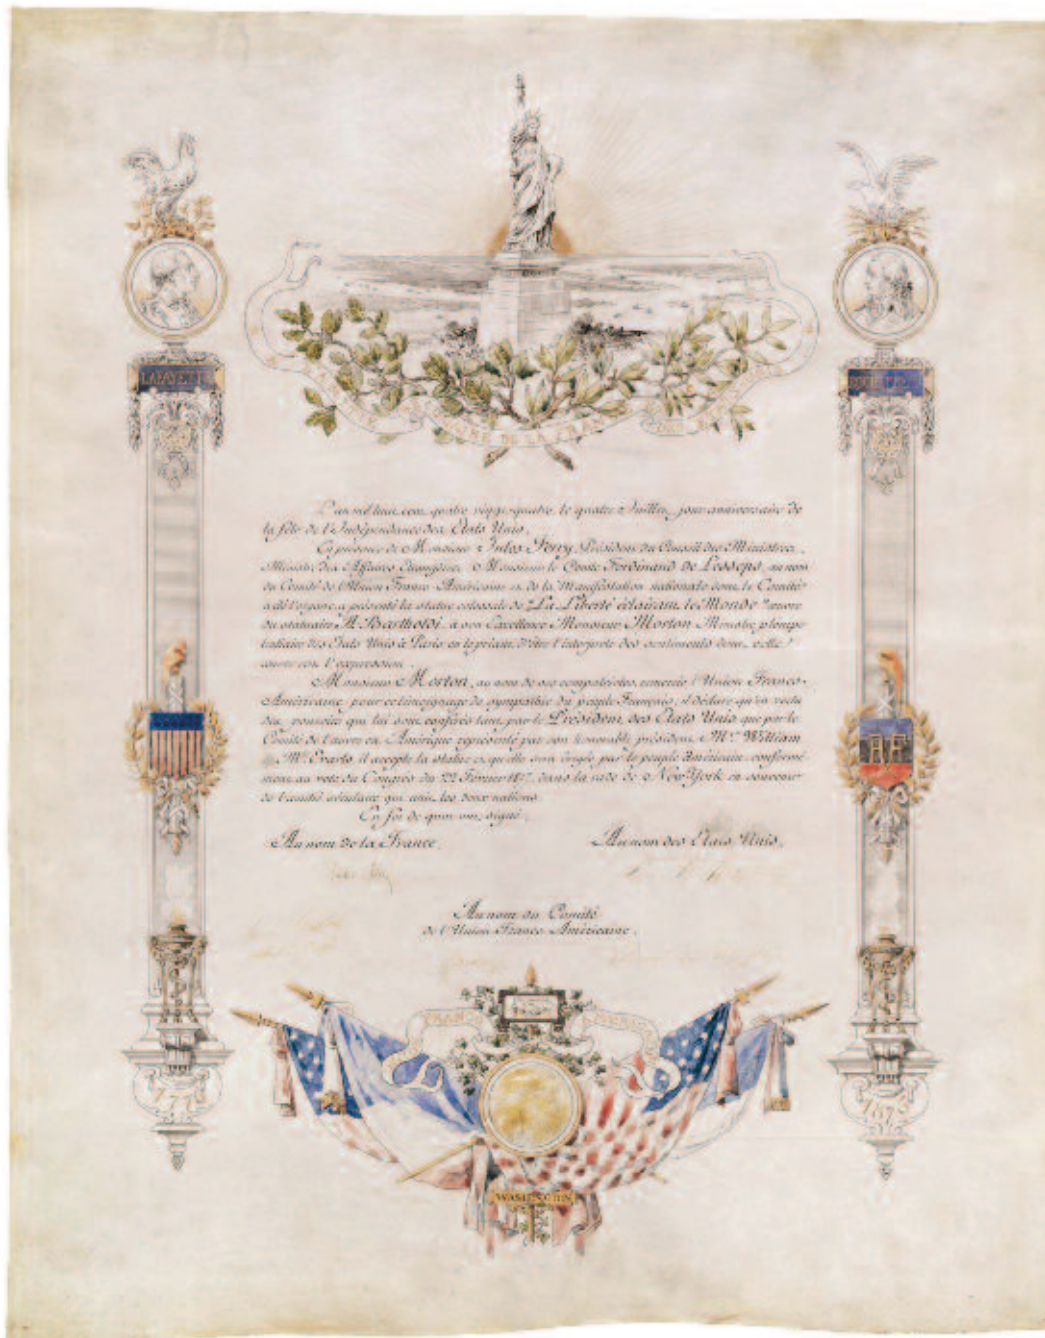 LAFAYETTE
ROCHAMBEAU
DE LA FRANCE
L'an mil huit cent quatre vingt-quatre, le quatre Juillet, jour anniversaire de
la fête de l'Indépendance des Etats Unis.
En présence de Monsieur Jules Ferry, Président du Conseil des Ministres,
Ministre des Affaires Etrangères, Monsieur le Comte Ferdinand de Lesseps, au nom
du Comité de l'Union Franco-Américaine et de la Manifestation nationale dont le Comité
a été l'organe, a présenté la statue colossale de "La Liberté éclairant le Monde" œuvre
du statuaire A. Bartholdi, à son Excellence Monsieur Morton Ministre plénipo-
tentiaire des Etats Unis à Paris en le priant d'être l'interprète des sentiments dont cette
œuvre est l'expression.
Monsieur Morton, au nom de ses compatriotes, remercie l'Union Franco-
Américaine pour ce témoignage de sympathie du peuple Français, il déclare qu'en vertu
des pouvoirs qui lui sont conférés tant par le Président des Etats Unis que par le
Comité de l'œuvre en Amérique représenté par son honorable président Mr. William
M. Evarts il accepte la statue et qu'elle sera érigée par le peuple Américain, conformé-
ment au vote du Congrès du 22 Février 1877, dans la rade de New York en souvenir
de l'amitié séculaire qui unit les deux nations.
En foi de quoi ont signé:
Au nom de la France,
Au nom des Etats Unis,
Jules Ferry
Au nom du Comité
de l'Union Franco Américaine.
FRANCE
WASHINGTON